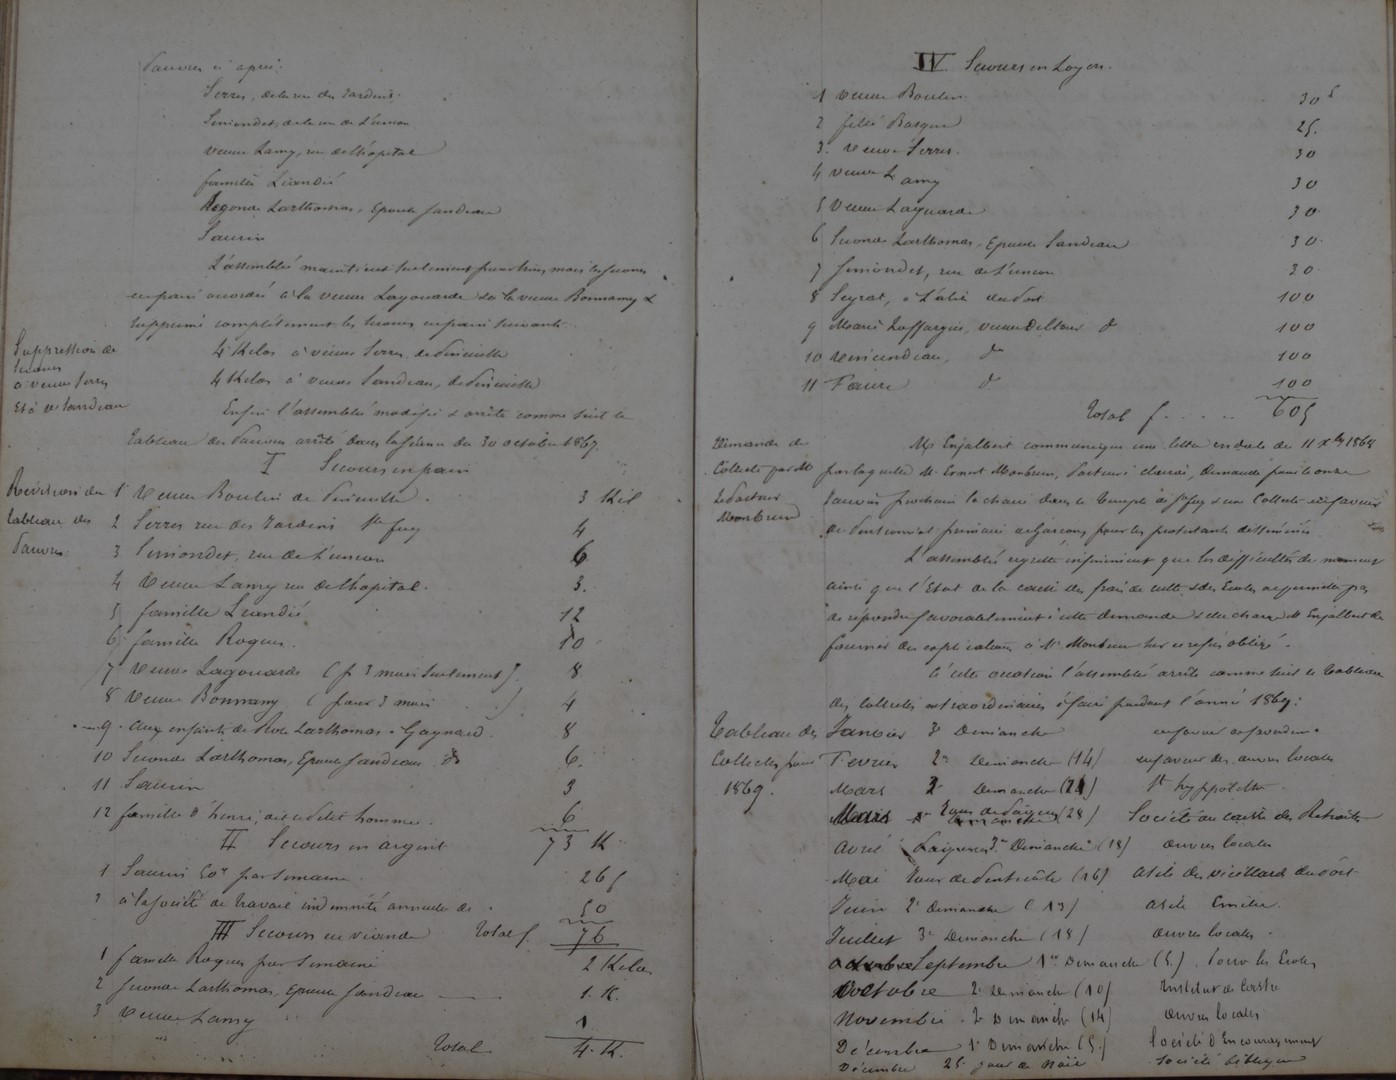 Pauvres ci après:
Serres, de la rue des Jardins.
Simondet, de la rue de l'union
veuve Lamy, rue de l'hôpital
famille
Larthomas, Epouse Jandeau
Saurin
L'assemblée maintient seulement pour trois mois les secours
en pain accordés à la veuve Lagouarde & à la veuve Bonnamy &
supprime complètement les secours en pain suivants.
Suppression de
secours
à veuve Serres
Et à ve Jandeau
4 Kilos à veuve Serres, de
4 Kilos à veuve Jandeau, de
Enfin l'assemblée modifie & arrête comme suit le
tableau des Pauvres arrêté dans la séance du 30 octobre 1867.
I Secours en pain
Révision du
tableau des
Pauvres
1 Veuve Boulin de 3 Kil
2 Serres rue des Jardins Ste foy 4
3 Simondet, rue de l'union 6
4 Veuve Lamy rue de l'hôpital. 3.
5 famille 12
6 famille Roques. 10
7 Veuve Lagouarde (p. 3 mois seulement) 8
8 Veuve Bonnamy (pour 3 mois ) 4
9 aux enfants de Larthomas - Gaynard. 8
10 Larthomas, Epouse Jandeau 6.
11 Saurin 3
12 famille d'henri, dit le petit homme. 6
73 K
II Secours en argent
1 Saurin 50c par semaine. 26 f
2 à la société de travail indemnité annuelle de . 50
Total f. 76
III Secours en viande
1 famille Roques par semaine 2 Kilos
2 Larthomas, Epouse Jandeau 1. K.
3 Veuve Lamy 1
Total 4. K.
IV Secours en Loyer.
1 veuve Boulin 30 f
2 fille Basque 25.
3. veuve Serres. 30
4 veuve Lamy 30
5 Veuve Laguarde 30
6 Larthomas, Epouse Jandeau 30.
7 Simondet, rue de l'union 30
8 Seyrat, à l'asile du Port 100
9 Marie Laffargue, veuve do 100
10 do 100
11 Faure do 100
Total f. . . . . 605
Demande de
Collecte par M
le Pasteur
Monbrun
M. Enjalbert communique une lettre en date du 11 Xbre 1868
par laquelle M. Ernest Monbrun, Pasteur à demande pour le onze
Janvier prochain la chaire dans le Temple de Ste foy & une Collecte en faveur
du Pensionnat primaire de garçons pour les protestants disséminés
L'assemblée regrette infiniment que les difficultés du moment
ainsi que l'Etat de la caisse des frais de culte & des Ecoles ne permette pas
de répondre favorablement à cette demande & elle charge M Enjalbert de
fournir des explications à M. Monbrun sur ce refus obligé.
à cette occasion l'assemblée arrête comme suit le tableau
des collectes extraordinaires à faire pendant l'année 1869:
Tableau des
Collectes pour
1869.
Janvier 3e Dimanche
Fevrier 2e Dimanche (14) en faveur des œuvres locales
Mars 3e Dimanche (21) St hyppolite
Mars Jour de Pâques (28) Société ou caisse de Retraite
Avril 3e Dimanche (18) œuvres locales
Mai Jour de Pentecôte (16) asile des vieillards du Port
Juin 2e Dimanche (13) asile Emilie.
Juillet 3e Dimanche (18) œuvres locales.
Septembre 1er Dimanche (5) Pour les Ecoles
Octobre 2e Dimanche (10) Institut de Castres
Novembre 2e Dimanche (14) œuvres locales
Décembre 1er Dimanche (5) Société d'Encouragement
Décembre 25 jour de Noël Société biblique